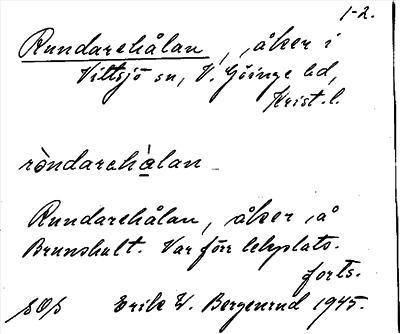 1-2.
Rundarehålan, åker i
Vittsjö sn, V. Göinge hd,
Krist. l.
ròndarehàlan
Rundarehålan, åker å
Brunshult. Var förr lekplats.
forts.
Erik W. Bergenrud 1945.